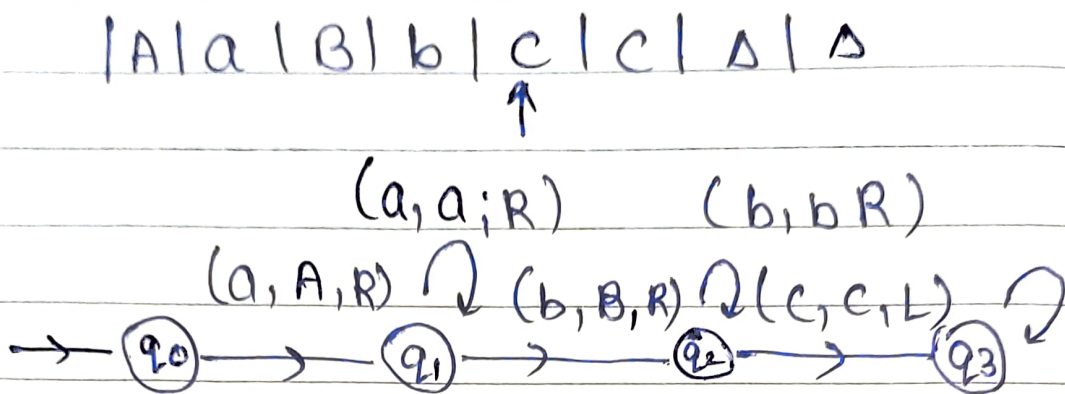 |A|a|B|b|C|C|Δ|Δ
(a,a;R) (b,bR)
(a,A,R) (b,B,R) (C,C,L)
q0 q1 q2 q3